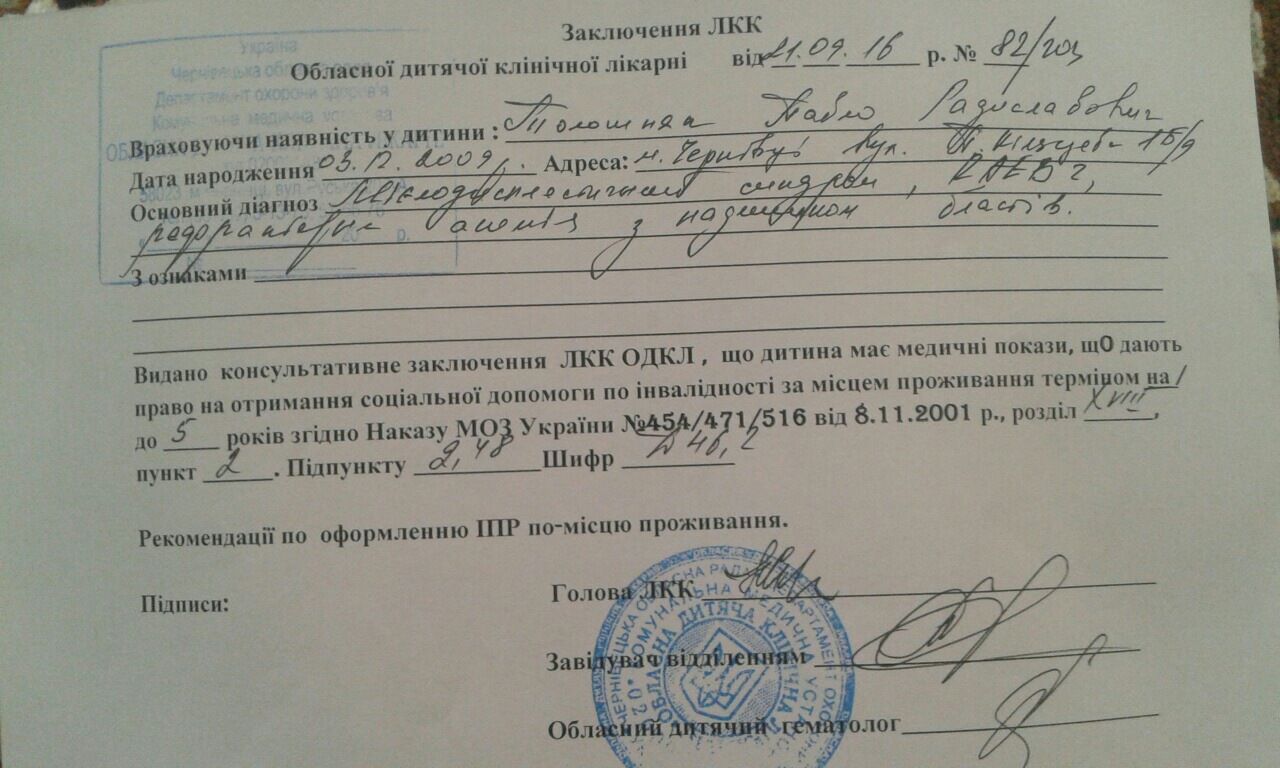 Заключення ЛКК
Обласної дитячої клінічної лікарні від 21.09.16 р. № 82/год
Україна
Департамент охорони здоров'я
Враховуючи наявність у дитини : Павло Радиславович
Дата народження 03.12.2009р. Адреса: м. Чернівці вул.
Основний діагноз Мієлодиспластичний синдром,
анемія з надлишком бластів.
З ознаками
Видано консультативне заключення ЛКК ОДКЛ , що дитина має медичні покази, щО дають
право на отримання соціальної допомоги по інвалідності за місцем проживання терміном на /
до 5 років згідно Наказу МОЗ України №454/471/516 від 8.11.2001 р., розділ XVIII,
пункт 2. Підпункту 2,48 Шифр D46,2
Рекомендації по оформленню ІПР по-місцю проживання.
Підписи:
Голова ЛКК
Завідувач відділенням
Обласний дитячий гематолог
ОБЛАСНА ДИТЯЧА КЛІНІЧНА
КОМУНАЛЬНА МЕДИЧНА